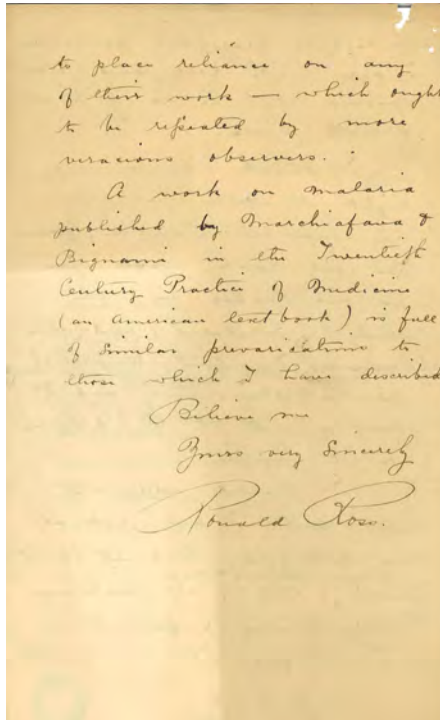 to place reliance on any
of their work — which ought
to be repeated by more
veracious observers.
A work on malaria
published by Marchiafava &
Bignami in the Twentieth
Century Practice of Medicine
(an American text book) is full
of similar prevarications to
those which I have described
Believe me
Yours very Sincerely
Ronald Ross.